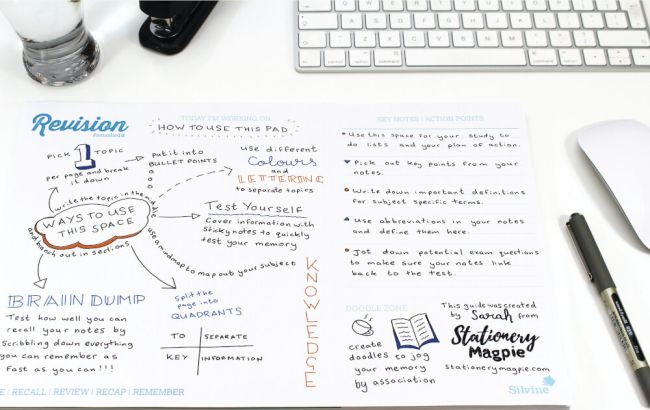 Revision
TODAY I'M WORKING ON...
HOW TO USE THIS PAD
PICK 1 TOPIC
per page and break
it down
Put it into
BULLET POINTS
use different
Colours
and
LETTERING
to separate topics
write the topic in the middle
WAYS TO USE
THIS SPACE
and branch out in sections
Test Yourself
Cover information with
Sticky notes to quickly
test your memory
use a mindmap to map out your subject
BRAIN DUMP
Test how well you can
recall your notes by
Scribbling down everything
you can remember as
Fast as you can!!!
Split the
page into
QUADRANTS
TO SEPARATE
KEY INFORMATION
KNOWLEDGE
| RECALL | REVIEW | RECAP | REMEMBER
KEY NOTES | ACTION POINTS
Use this space for your study to
do lists and your plan of action.
Pick out key points from your
notes.
Write down important definitions
for subject specific terms.
Use abbreviations in your notes
and define them here.
Jot down potential exam questions
to make sure your notes link
back to the test.
DOODLE ZONE
create
doodles to jog
your memory
by association
This guide was created
by Sarah from
Stationery
Magpie
stationerymagpie.com
Silvine